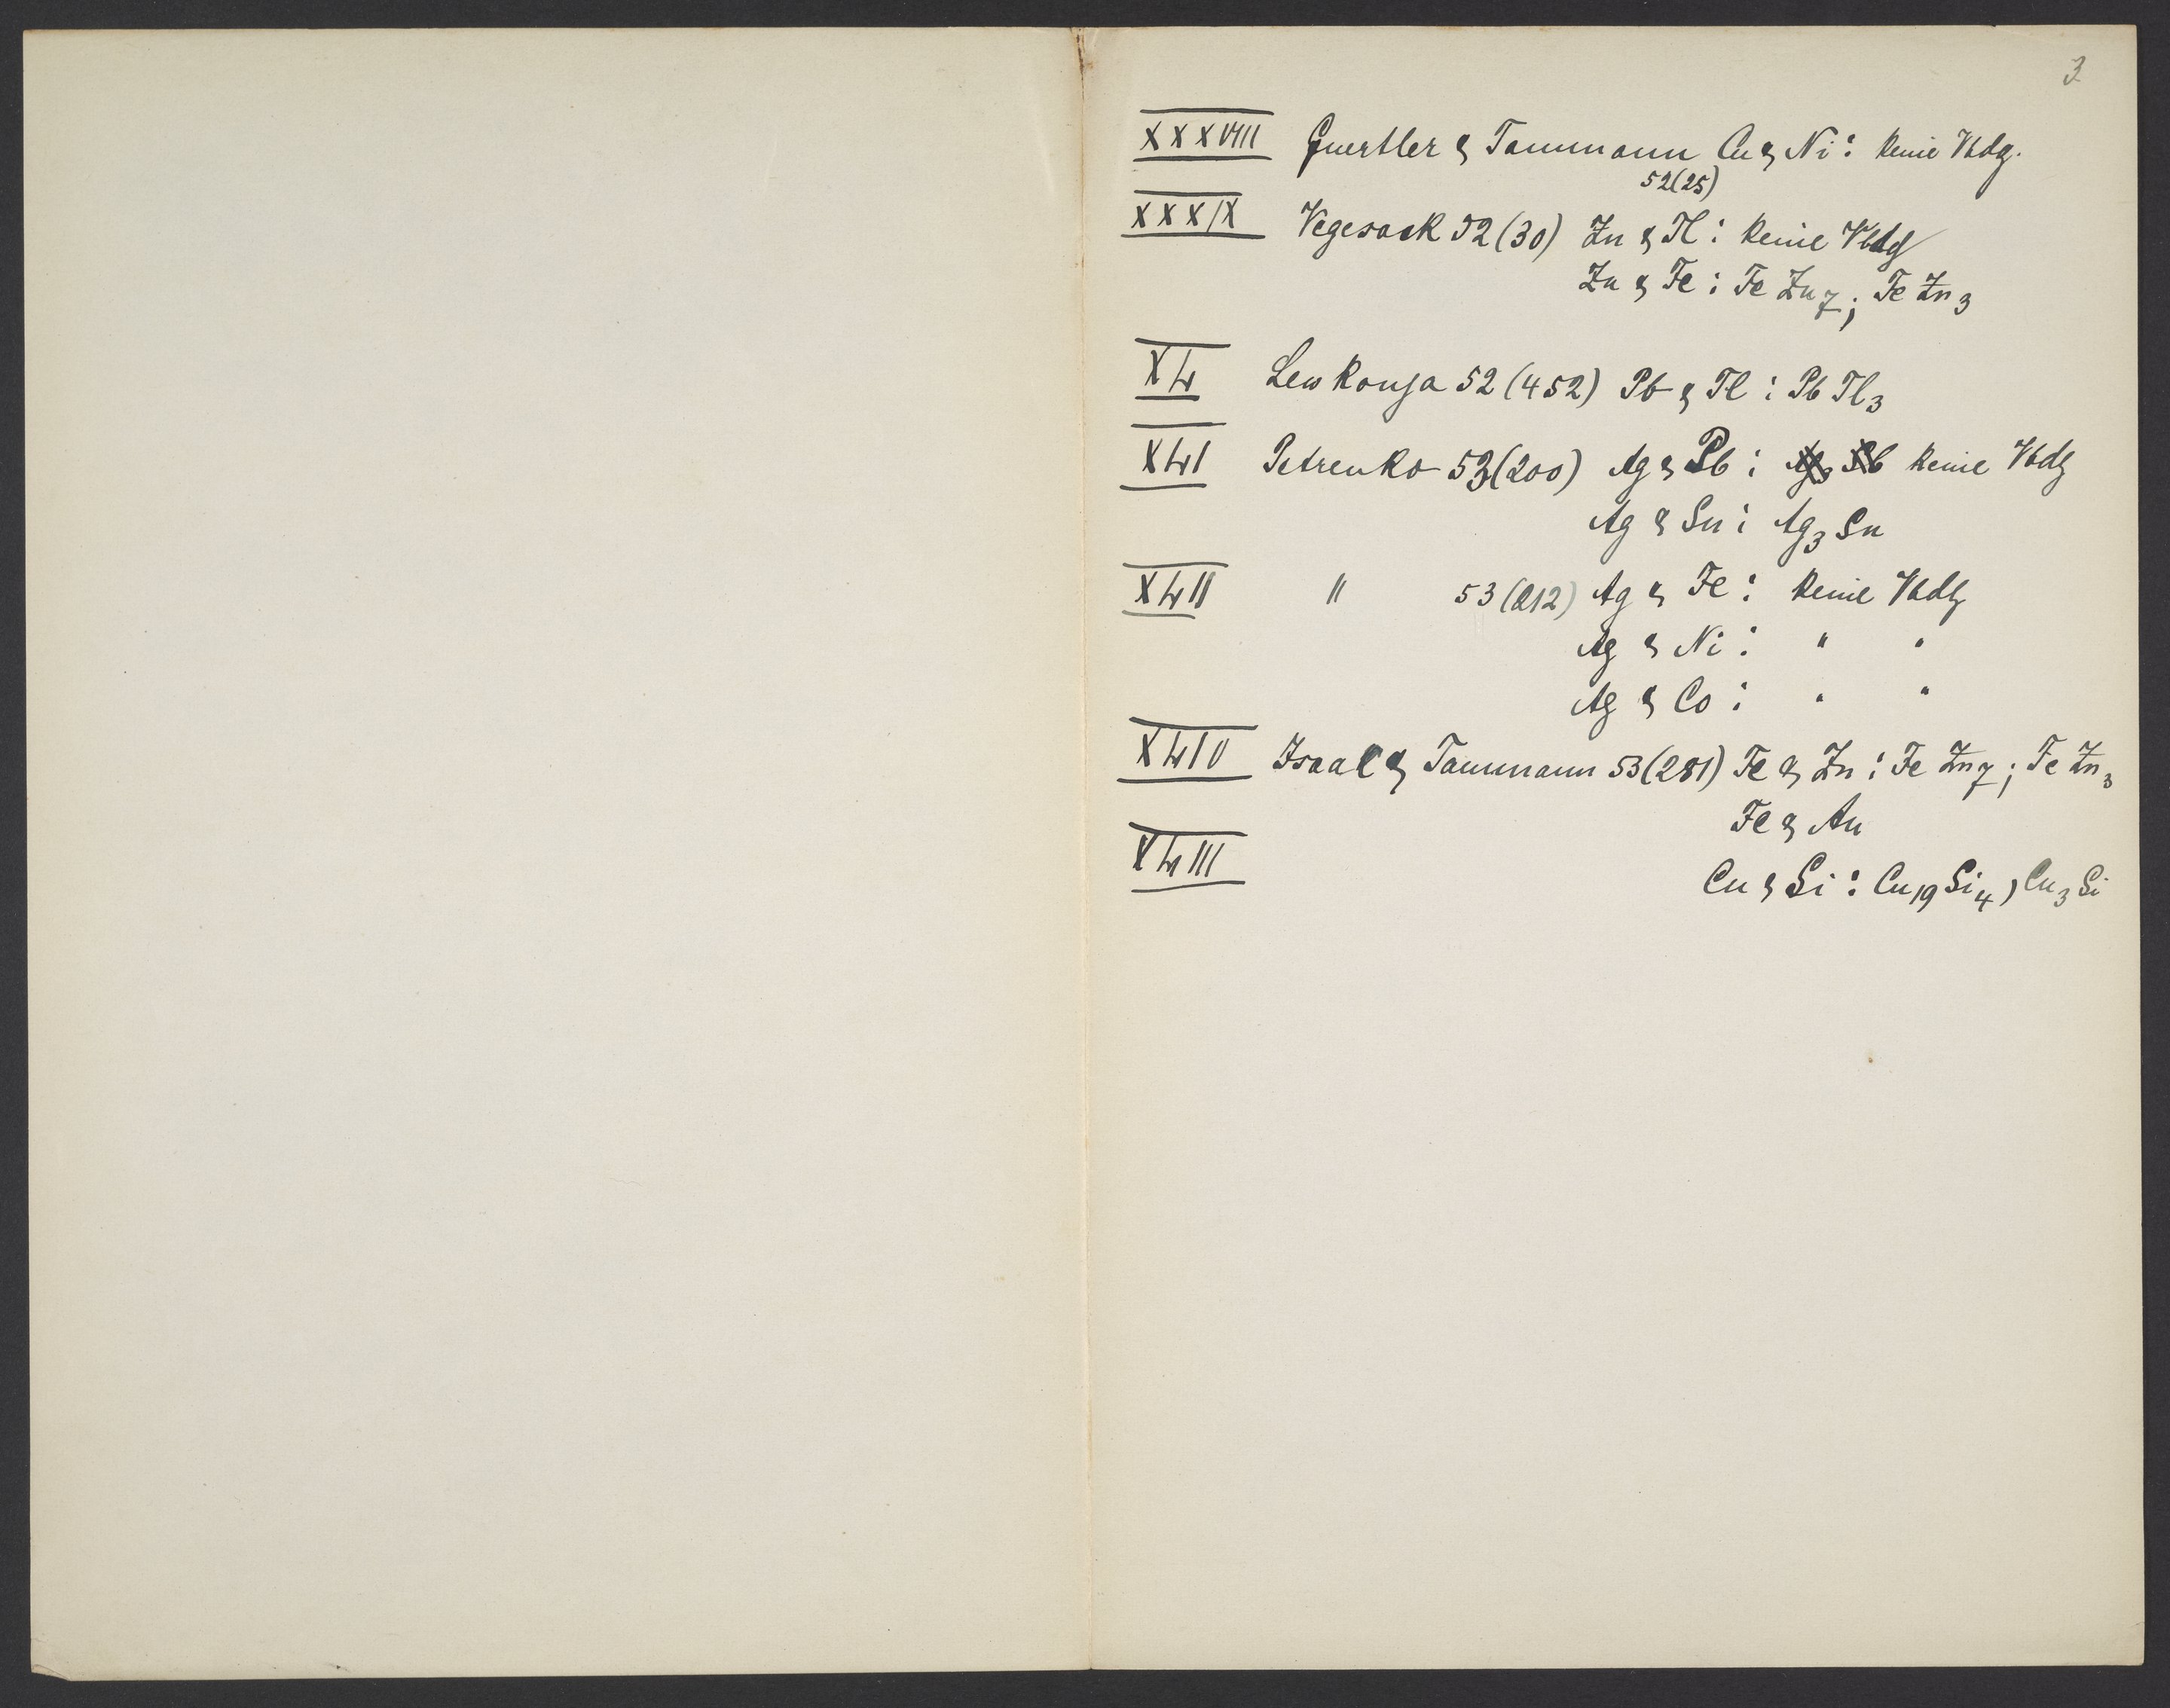 3
XXXVIII Guertler & Tammann Cu & Ni: keine Vbdg.
52(25)
XXXIX Vegesack 52(30) Zn & Tl: keine Vbdg
Zn & Fe: FeZn₇; FeZn₃
XL Lewkonja 52(452) Pb & Tl: PbTl₃
XLI Petrenko 53(200) Ag & Pb: keine Vbdg
Ag & Sn: Ag₃Sn
XLII " 53(212) Ag & Fe: keine Vbdg
Ag & Ni: " "
Ag & Co: " "
XLIV Isaac & Tammann 53(281) Fe & Zn: FeZn₇; FeZn₃
Fe & Au
XLIII
Cu & Si: Cu₁₉Si₄, Cu₃Si